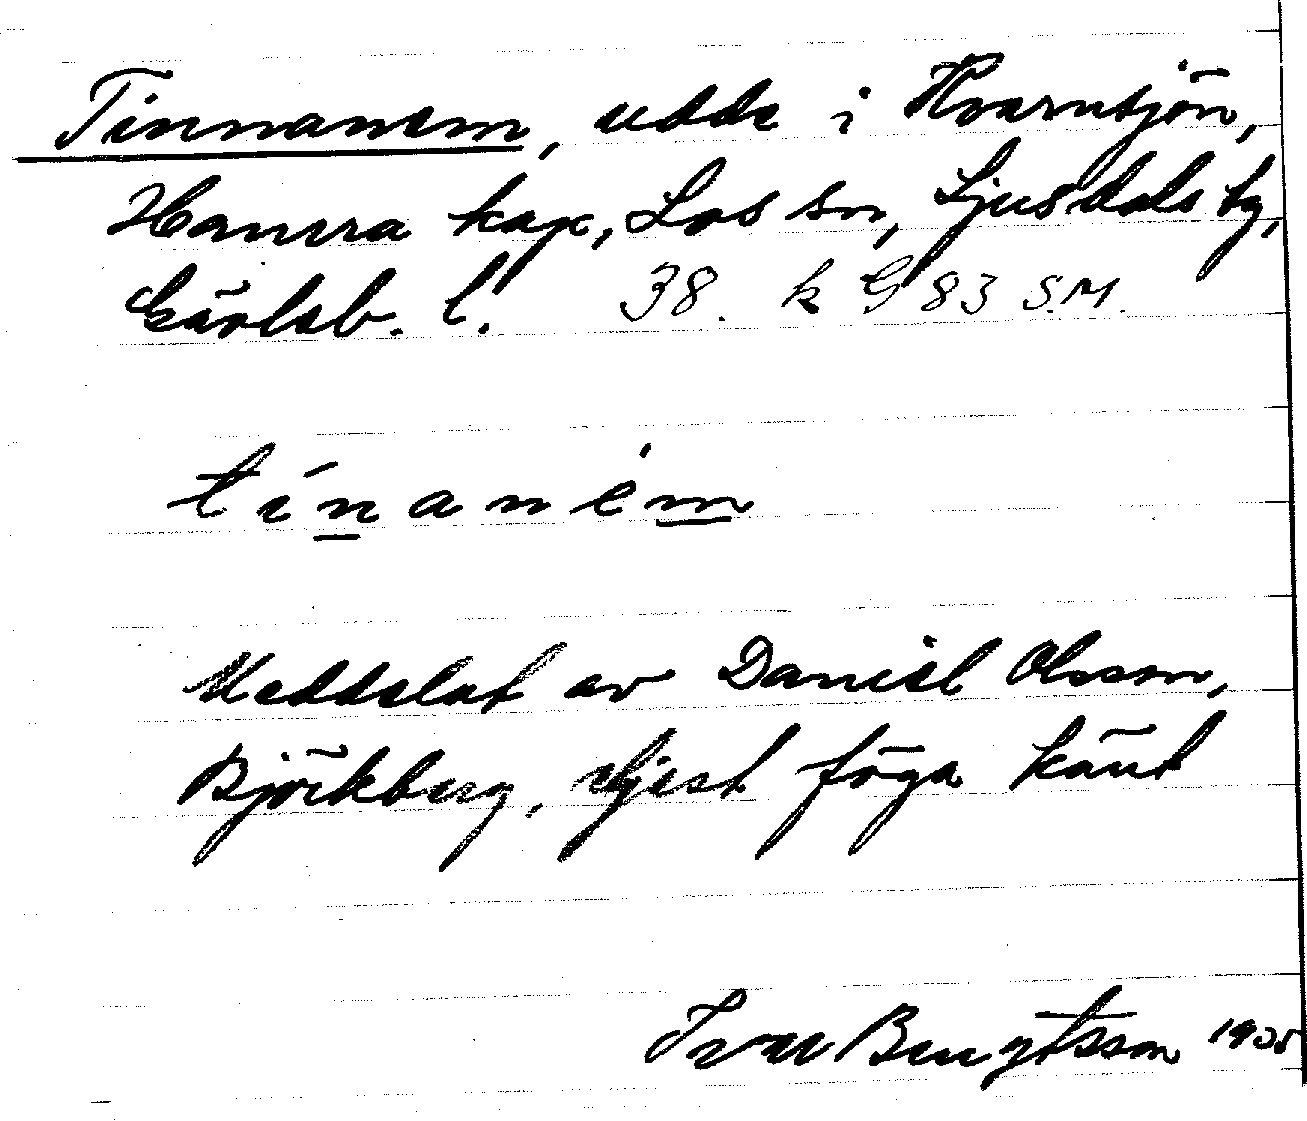 Tinnanem, udde i Kvarnsjön,
Hamra kap, Los sn, Ljusdals tg,
Gävleb. l. 38. k G 83 S.M.
tínaném
Meddelat av Daniel Olsson,
Björkberg, eljest föga känt
Ivar Bengtsson 1935